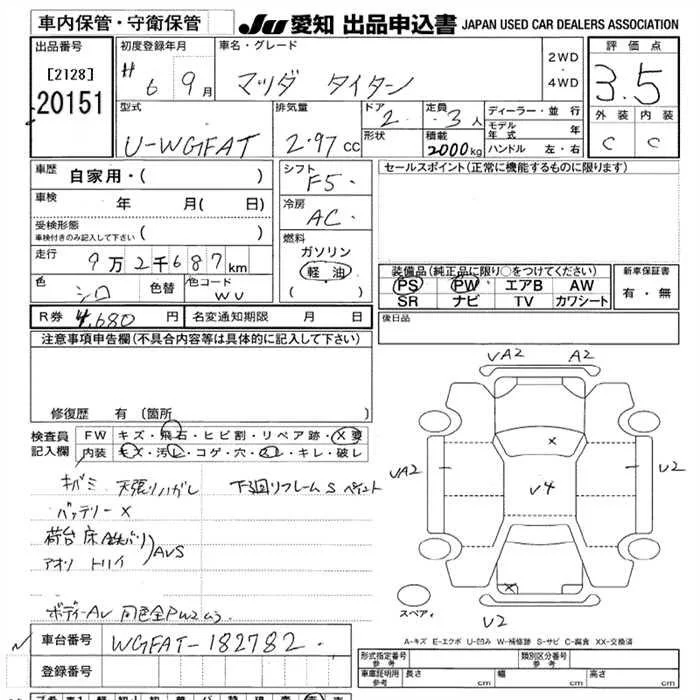 車内保管・守衛保管 JU 愛知 出品申込書 JAPAN USED CAR DEALERS ASSOCIATION
出品番号 初度登録年月 車名・グレード 2WD・4WD 評価点
[2128] H 6 9月 マツダ タイタン 3.5
20151
型式 排気量 ドア 2 定員 3人 ディーラー・並行 外装 内装
U-WGFAT 2.97cc 形状 積載 2000kg モデル年式 年 C C
ハンドル 左・右
車歴 自家用・( ) シフト F5. セールスポイント(正常に機能するものに限ります)
車検 年 月( 日) 冷房 AC.
受検形態 ( )
車検付きのみ記入して下さい
走行 9万2千687km 燃料 ガソリン 軽油 ( )
色 シロ 色替 色コード WU
装備品(純正品に限り○をつけてください) 新車保証書
PS PW エアB AW 有・無
SR ナビ TV カワシート
R券 4,680円 名変通知期限 月 日 後日品
注意事項申告欄(不具合内容等は具体的に記入して下さい)
修復歴 有(箇所
検査員記入欄 FW キズ・飛石・ヒビ割・リペア跡・X要
内装 キズ・汚レ・コゲ・穴・スレ・キレ・破レ
キバミ 天張りハガレ 下廻りフレームS ペイント
バッテリーX
荷台 床
アオリ トリイ AVS
ボディーAU
VA2 A2
X
VA2 V4 U2
X
スペア. V2
A-キズ E-エクボ U-凹み W-補修跡 S-サビ C-腐食 XX-交換済
車台番号 WGFAT-182782.
登録番号
形式指定番号 参考 類別区分番号 参考
車庫証明用 参考 長さ cm 幅 cm 高さ cm